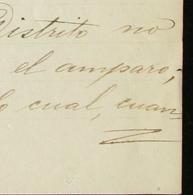 Distrito no
el amparo;
lo cual, cuan